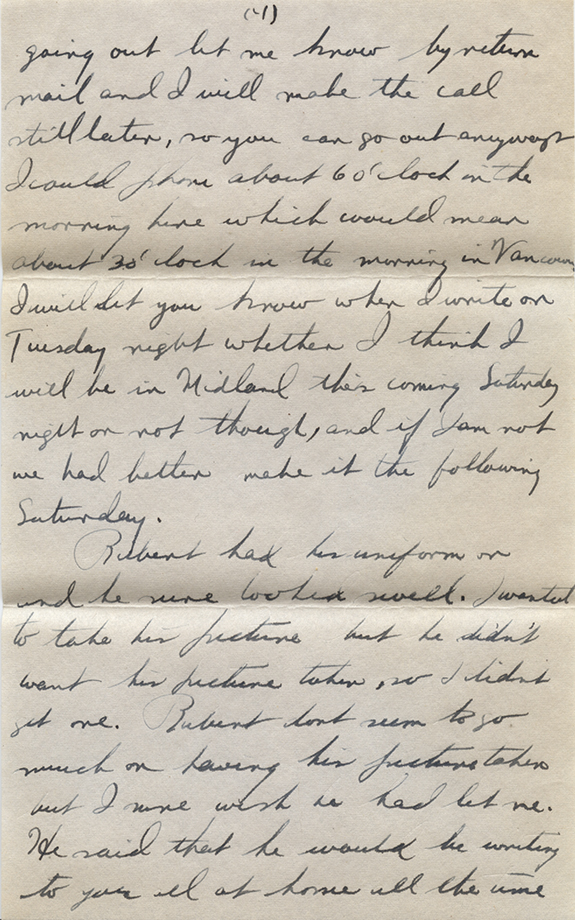 (4)
going out let me know by return
mail and I will make the call
still later, so you can go out anyways
I could phone about 6 o'clock in the
morning here which would mean
about 3 o'clock in the morning in Vancouver
I will let you know when I write on
Tuesday night whether I think I
will be in Midland this coming Saturday
night or not though, and if I am not
we had better make it the following
Saturday.
Robert had his uniform on
and he sure looked swell. I wanted
to take his picture but he didn't
want his picture taken, so I didn't
get one. Robert dont seem to go
much on having his picture taken
but I sure wish he had let me.
He said that he would be writing
to you all at home all the time